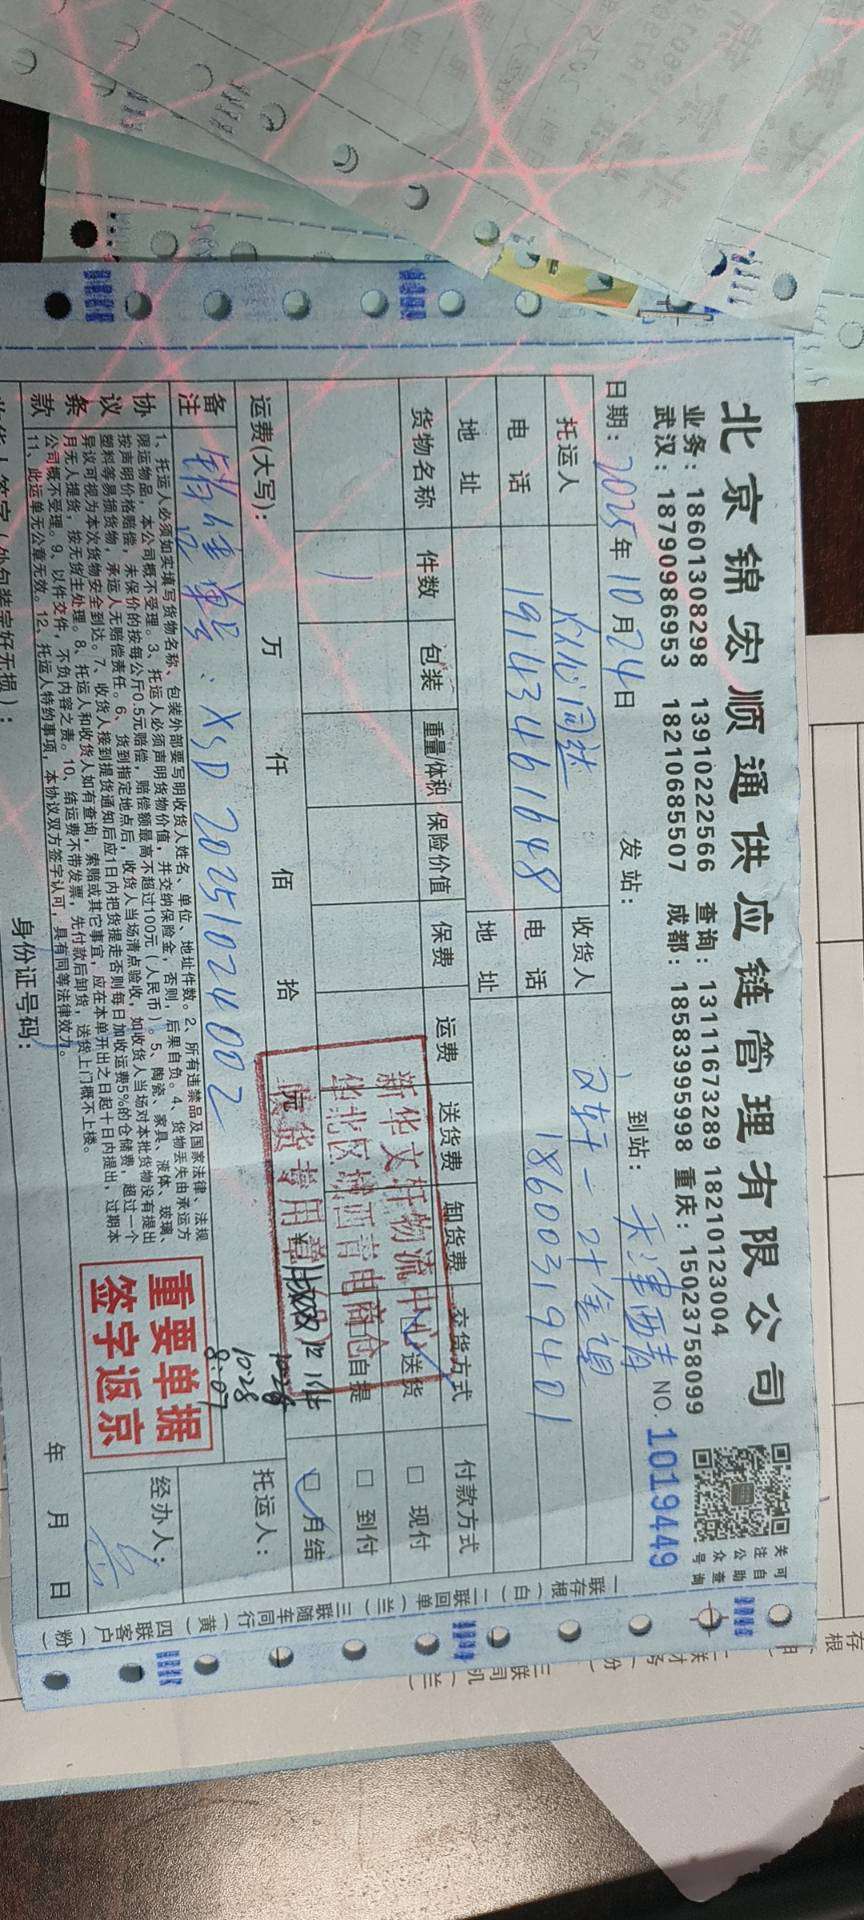 北京锦宏顺通供应链管理有限公司
业务：18601308298 13910222566 查询：13111673289 18210123004
武汉：18790986953 18210685507 成都：18583995998 重庆：15023758099
关注公众号
可自助查询
日期：2025年10月24日 发站： 到站：天津西青 NO.1019449
托运人 收货人 文轩一
电话 19143461648 电话 18600319401
地址 地址
货物名称 件数 包装 重量/体积 保险价值 保费 运费 送货费 卸货费 交货方式 付款方式
1 送货 □现付
自提 □到付
运费(大写)： 万 仟 佰 拾 元 □月结
新华文轩物流中心
华北区域西青电商仓
收货专用章
1028
8:07
备注 销售单号：XSD20251024002 托运人：
协议条款
1、托运人必须如实填写货物名称、包装外部要写明收货人姓名、单位、地址件数。2、所有违禁品及国家法律、法规
限运物品，本公司概不受理。3、托运人必须声明货物价值，并交纳保险金，否则，后果自负。4、货物丢失由承运方
按声明价格赔偿，未保价的按每公斤0.5元赔偿，赔偿额最高不超过100元（人民币）。5、陶瓷、家具、液体、玻璃、
塑料等易损货物，承运人无赔偿责任。6、货到指定地点后，收货人当场清点验收，如收货人当场对本批货物没有提出
异议可视为本次货物安全到达。7、收货人接到提货通知后应1日内把货提走否则每日加收运费5%的仓储费，超过一个
月无人提货，按无货主处理。8、托运人和收货人如有查询，索赔或其它事宜，应在本单开出之日起十日内提出，过期本
公司概不受理。9、以件交件，不负内容之责。10、结运费不带发票，先付款后卸货，送货上门概不上楼。
11、此运单无公章无效。12、托运人特约事项，本协议双方签字认可，具有同等法律效力。
重要单据
签字返京
经办人：
收货人签字（外包装完好无损）： 身份证号码： 年 月 日
一联存根（白）二联回单（兰）三联随车同行（黄）四联客户（粉）